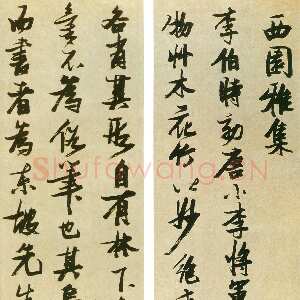 西園雅集
李伯時効唐小李將軍
物艸木花竹皆妙絶
各肖其形自有林下
不為俗筆也其烏
而書者為東坡先生
Shufawang.CN